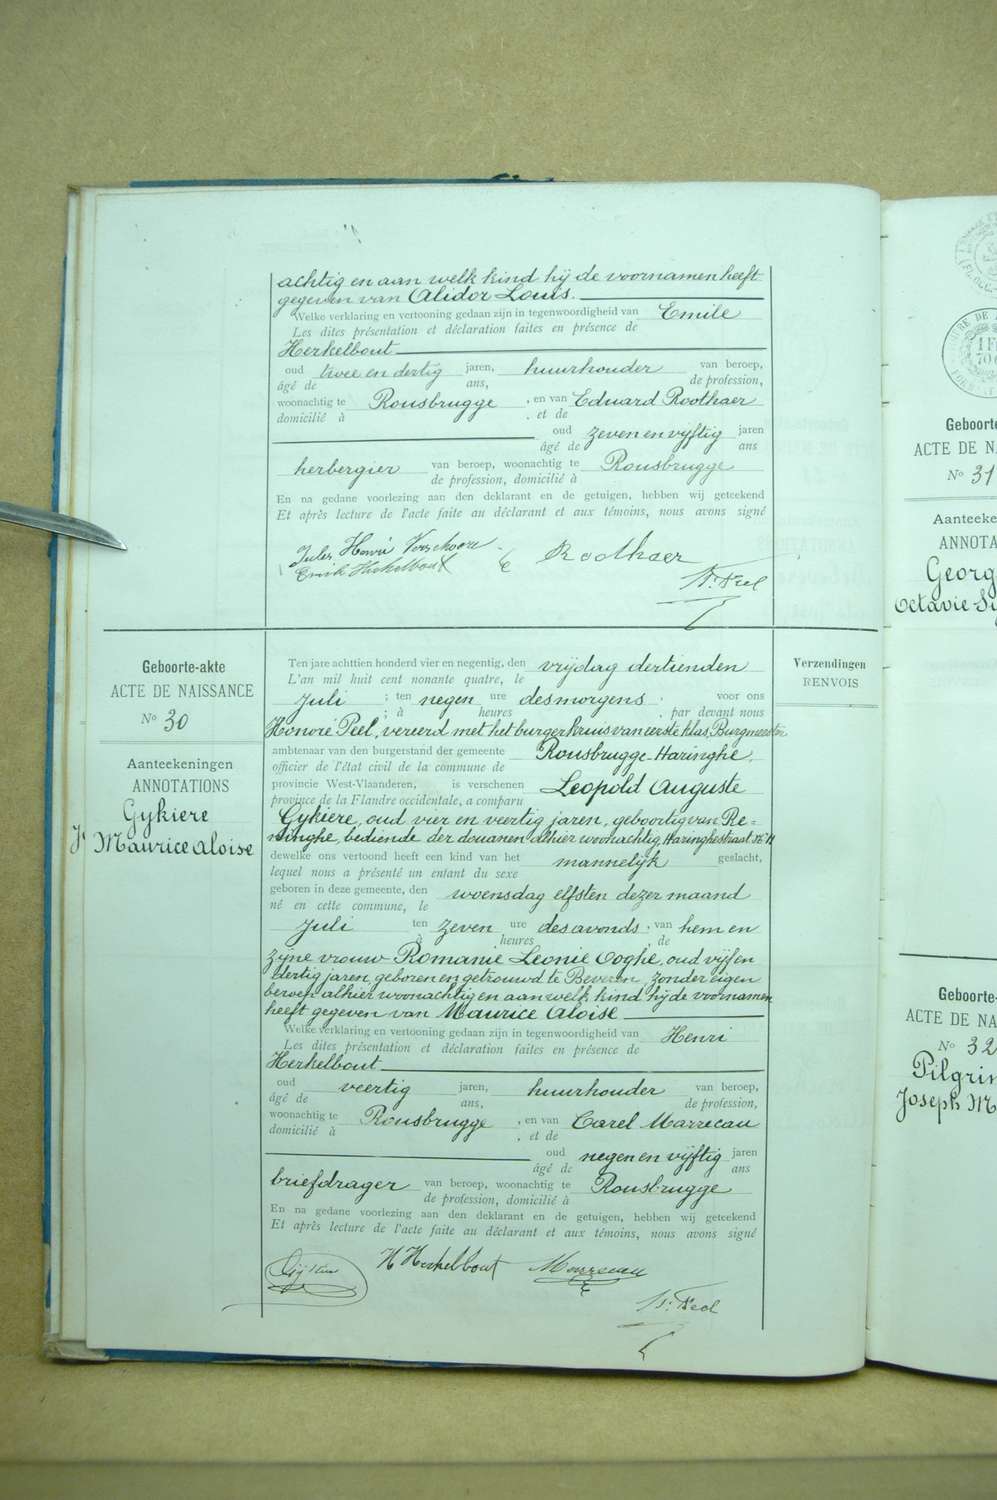 achtig en aan welk kind hij de voornamen heeft
gegeven van Alidor Louis.
Welke verklaring en vertooning gedaan zijn in tegenwoordigheid van Emile
Les dites présentation et déclaration faites en présence de
Herkelbout
oud twee en dertig jaren, huurhouder van beroep,
âgé de ans, de profession,
woonachtig te Rousbrugge, en van Eduard Roothaer
domicilié à . et de
oud zeven en vijftig jaren
âgé de ans
herbergier van beroep, woonachtig te Rousbrugge
de profession, domicilié à
En na gedane voorlezing aan den deklarant en de getuigen, hebben wij geteekend
Et après lecture de l'acte faite au déclarant et aux témoins, nous avons signé
Jules Henri
Emile Herkelbout
E Roothaer
H. Peel
Geboorte-akte
ACTE DE NAISSANCE
No 30
Aanteekeningen
ANNOTATIONS
Gykiere
Maurice Aloise
Ten jare achttien honderd vier en negentig, den vrijdag dertienden
L'an mil huit cent nonante quatre, le
Juli ; ten negen ure des morgens : voor ons
; à heures , par devant nous
Honoré Peel, vereerd met het burgerkruis van eerste klas, Burgmeester
ambtenaar van den burgerstand der gemeente Rousbrugge-Haringhe,
officier de l'état civil de la commune de
provincie West-Vlaanderen, is verschenen Leopold Auguste
province de la Flandre occidentale, a comparu
Gykiere, oud vier en veertig jaren, geboortig van Re=
ninghe, bediende der douanen alhier woonachtig, Haringhestraat No 11
dewelke ons vertoond heeft een kind van het mannelijk geslacht,
lequel nous a présenté un enfant du sexe
geboren in deze gemeente, den woensdag elfsten dezer maand
né en cette commune, le
Juli ten zeven ure des avonds, van hem en
à heures , de
zijne vrouw Romanie Leonie Coghe, oud vijf en
dertig jaren, geboren en getrouwd te Beveren, zonder eigen
beroep, alhier woonachtig en aan welk kind hij de voornamen
heeft gegeven van Maurice Aloise
Welke verklaring en vertooning gedaan zijn in tegenwoordigheid van Henri
Les dites présentation et déclaration faites en présence de
Herkelbout
oud veertig jaren, huurhouder van beroep,
âgé de ans, de profession,
woonachtig te Rousbrugge, en van Carel Marrecau
domicilié à . et de
oud negen en vijftig jaren
âgé de ans
briefdrager van beroep, woonachtig te Rousbrugge
de profession, domicilié à
En na gedane voorlezing aan den deklarant en de getuigen, hebben wij geteekend
Et après lecture de l'acte faite au déclarant et aux témoins, nous avons signé
H Herkelbout
Marrecau
H. Peel
Verzendingen
RENVOIS
Geboorte-
ACTE DE NA
No 31
Aanteeke
ANNOTA
Georg
Octavie
Geboorte-
ACTE DE NA
No 32
Pilgrim
Joseph M